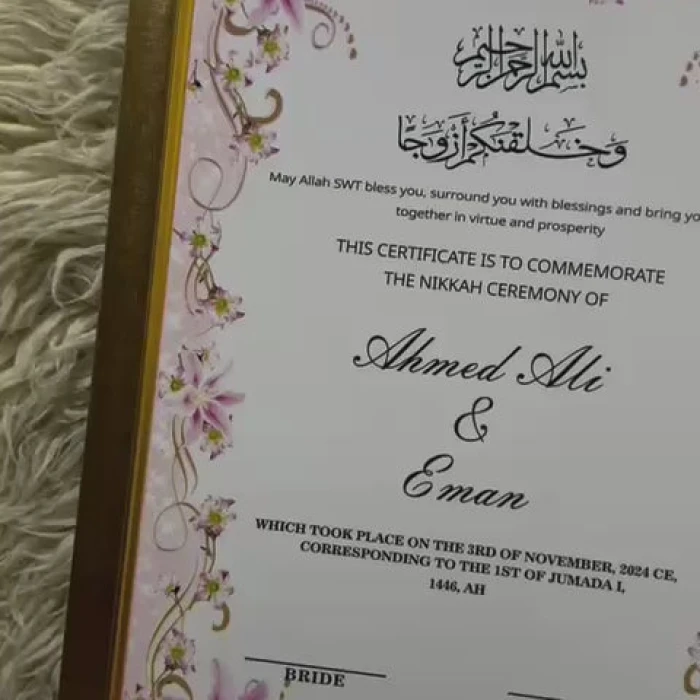 بسم الله الرحمن الرحيم
وَخَلَقْنَكُمْ أَزْوَاجًا
May Allah SWT bless you, surround you with blessings and bring
together in virtue and prosperity
THIS CERTIFICATE IS TO COMMEMORATE
THE NIKKAH CEREMONY OF
Ahmed Ali
&
Eman
WHICH TOOK PLACE ON THE 3RD OF NOVEMBER, 2024 CE,
CORRESPONDING TO THE 1ST OF JUMADA I,
1446, AH
BRIDE